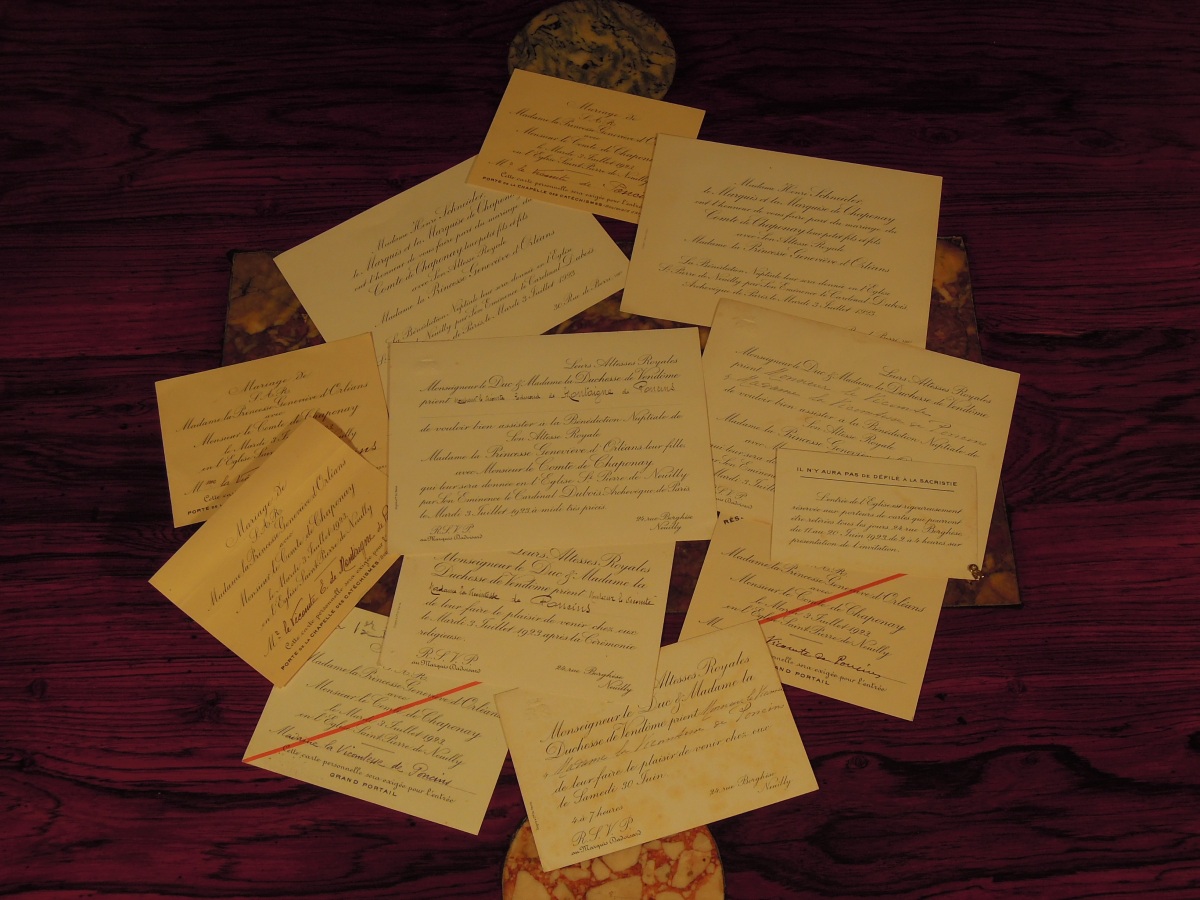 Mariage de
S. A. R.
Madame la Princesse Geneviève d'O
avec
Monsieur le Comte de Chapenay
le Mardi 3 Juillet 1923
en l'Eglise Saint-Pierre de Neuilly
Mr le Vicomte de Ponci
Cette carte personnelle sera exigée pour l'entrée
PORTE DE LA CHAPELLE DES CATÉCHISMES
Madame Henri Schneider
le Marquis et la Marquise de Chapon
ont l'honneur de vous faire part du mariage du
Comte de Chaponay leur petit fils et fils
avec Son Altesse Royale
Madame la Princesse Geneviève d'Orléans
la Bénédiction Nuptiale leur sera donnée en l'Eglise
de Neuilly par Son Eminence le Cardinal Dubois
de Paris, le Mardi 3 Juillet 1923
Madame Henri Schneider
le Marquis et la Marquise de Chaponay
ont l'honneur de vous faire part du mariage du
Comte de Chaponay leur petit fils et fils
avec Son Altesse Royale
Madame la Princesse Geneviève d'Orléans
La Bénédiction Nuptiale leur sera donnée en l'Eglise
St Pierre de Neuilly par Son Eminence le Cardinal Dubois
Archevêque de Paris le Mardi 3 Juillet 1923
Mariage de
S. A. R.
Madame la Princesse Geneviève d'Orléans
avec
Monsieur le Comte de Chaponay
le Mardi 3
en l'Eglise Sai
Mme la
Cette
PORTE DE
Leurs Altesses Royales
Monseigneur le Duc & Madame la Duchesse de Vendôme
prient Monsieur le Vicomte de Montaigne de Poncins
de vouloir bien assister à la Bénédiction Nuptiale de
Son Altesse Royale
Madame la Princesse Geneviève d'Orléans leur fille
avec Monsieur le Comte de Chaponay
qui leur sera donnée en l'Eglise St Pierre de Neuilly
par Son Eminence le Cardinal Dubois Archevêque de Paris
le Mardi 3 Juillet 1923 à midi très précis
R.S.V.P.
22 rue Borghèse
Neuilly
Leurs Altesses Royales
Monseigneur le Duc & Madame la Duchesse de Vendôme
prient Monsieur le Vicomte
de vouloir bien assister à la Bénédiction Nuptiale de
Son Altesse Royale
Madame la Princesse
avec M
IL N'Y AURA PAS DE DÉFILÉ A LA SACRISTIE
L'entrée de l'Eglise est rigoureusement
réservée aux porteurs de cartes qui peuvent
être retirées tous les jours 22 rue Borghèse
du 11 au 20 Juin 1923 de 2 à 4 heures sur
présentation de l'invitation.
Mariage de
S. A. R.
Madame la Princesse Geneviève d'Orléans
avec
Monsieur le Comte de Chaponay
le Mardi 3 Juillet 1923
en l'Eglise Saint-Pierre de Neuilly
Mr le Vicomte L. de Montaigne de P
Cette carte personnelle sera exigée pour
PORTE DE LA CHAPELLE DES CATÉCHISMES
Leurs Altesses Royales
Monseigneur le Duc & Madame la
Duchesse de Vendôme prient Monsieur le Vicomte
Madame la Vicomtesse de Poncins
de leur faire le plaisir de venir chez eux
le Mardi 3 Juillet 1923 après la Cérémonie
religieuse.
R.S.V.P.
22 rue Borghèse
Neuilly
RÉS.
Madame la Princesse Geneviève d'Orléans
avec
Monsieur le Comte de Chaponay
le Mardi 3 Juillet 1923
en l'Eglise Saint-Pierre de Neuilly
M Vicomte de Poncins
personnelle sera exigée pour l'entrée
GRAND PORTAIL
Madame la Princesse Geneviève d'Orléans
avec
Monsieur le Comte de Chaponay
le Mardi 3 Juillet 1923
en l'Eglise Saint-Pierre de Neuilly
Madame la Vicomtesse de Poncins
Cette carte personnelle sera exigée pour l'entrée
GRAND PORTAIL
Altesses Royales
Monseigneur le Duc & Madame la
Duchesse de Vendôme prient
Madame la Vicomtesse de Poncins
de leur faire le plaisir de venir chez eux
le Samedi 30 Juin
4 à 7 heures
R.S.V.P.
22 rue Borghèse
Neuilly